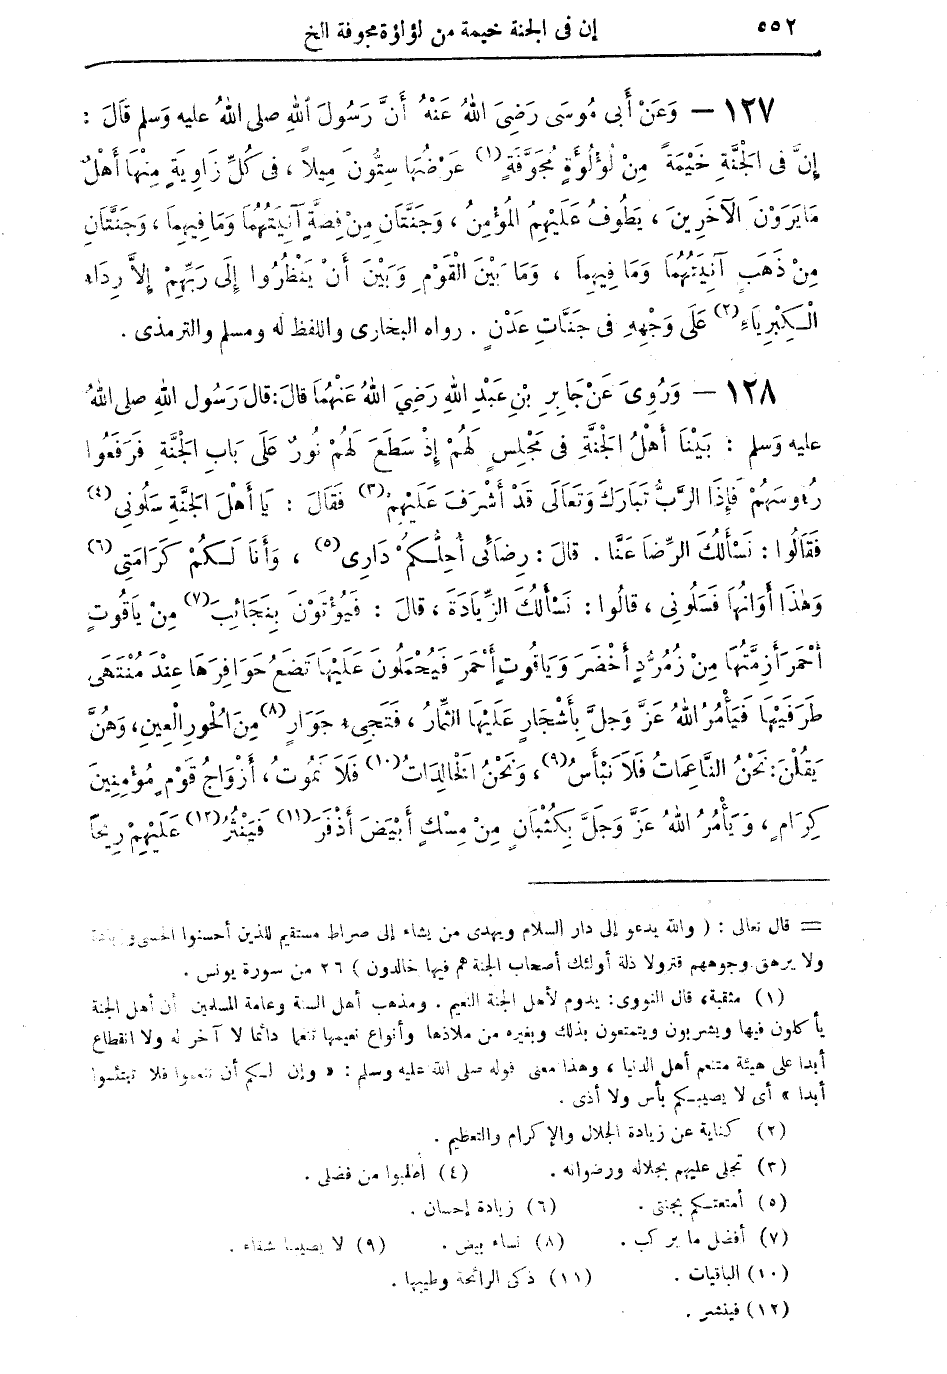 ٥٥٢ إن فى الجنة خيمة من لؤلؤة مجوفة الخ
١٢٧ — وَعَنْ أَبِى مُوسَى رَضِىَ اللهُ عَنْهُ أَنَّ رَسُولَ اللهِ صلى اللهُ عليه وَسلم قَالَ :
إِنَّ فى الْجَنَّةِ خَيْمَةً مِنْ لُؤْلُؤَةٍ مُجَوَّفَةٍ(١) عَرْضُهَا سِتُّونَ مِيلاً ، فى كُلِّ زَاوِيَةٍ مِنْهَا أَهْلٌ
مَا يَرَوْنَ الْآخَرِينَ ، يَطُوفُ عَلَيْهِمُ الْمُؤْمِنُ ، وَجَنَّتَانِ مِنْ فِضَّةٍ آنِيَتُهُمَا وَمَا فِيهِمَا ، وَجَنَّتَانِ
مِنْ ذَهَبٍ آنِيَتُهُمَا وَمَا فِيهِمَا ، وَمَا بَيْنَ الْقَوْمِ وَبَيْنَ أَنْ يَنْظُرُوا إِلَى رَبِّهِمْ إِلاَّ رِدَاءُ
الْكِبْرِيَاءِ(٢) عَلَى وَجْهِهِ فى جَنَّاتِ عَدْنٍ . رواه البخارى واللفظ له ومسلم والترمذى .
١٢٨ — وَرُوِىَ عَنْ جَابِرِ بْنِ عَبْدِ اللهِ رَضِىَ اللهُ عَنْهُمَا قَالَ : قَالَ رَسُولُ اللهِ صلى اللهُ
عليه وَسلم : بَيْنَا أَهْلُ الْجَنَّةِ فى مَجْلِسٍ لَهُمْ إِذْ سَطَعَ لَهُمْ نُورٌ عَلَى بَابِ الْجَنَّةِ فَرَفَعُوا
رُءوسَهُمْ فَإِذَا الرَّبُّ تَبَارَكَ وَتَعَالَى قَدْ أَشْرَفَ عَلَيْهِمْ(٣) فَقَالَ : يَا أَهْلَ الْجَنَّةِ سَلُونِى(٤)
فَقَالُوا : نَسْأَلُكَ الرِّضَا عَنَّا . قَالَ : رِضَائى أُحِلُّكُمْ دَارِى(٥) ، وَأَنَا لَكُمْ كَرَامَتِى(٦)
وَهٰذَا أَوَانُهَا فَسَلُونِى ، قَالُوا : نَسْأَلُكَ الزِّيَادَةَ ، قَالَ : فَيُؤْتَوْنَ بِنَجَائِبَ(٧) مِنْ يَاقُوتٍ
أَحْمَرَ أَزِمَّتُهَا مِنْ زُمُرُّدٍ أَخْضَرَ وَيَاقُوتٍ أَحْمَرَ فَيُحْمَلُونَ عَلَيْهَا تَضَعُ حَوَافِرَهَا عِنْدَ مُنْتَهَى
طَرَفَيْهَا فَيَأْمُرُ اللهُ عَزَّ وَجَلَّ بِأَشْجَارٍ عَلَيْهَا الثِّمَارُ ، فَتَجِىءُ جَوَارٍ(٨) مِنَ الْحُورِ الْعِينِ ، وَهُنَّ
يَقُلْنَ : نَحْنُ النَّاعِمَاتُ فَلَا نَبْأَسُ(٩) ، وَنَحْنُ الْخَالِدَاتُ(١٠) فَلَا نَمُوتُ ، أَزْوَاجُ قَوْمٍ مُؤْمِنِينَ
كِرَامٍ ، وَيَأْمُرُ اللهُ عَزَّ وَجَلَّ بِكُثْبَانٍ مِنْ مِسْكٍ أَبْيَضَ أَذْفَرَ(١١) فَيَنْثُرُ(١٢) عَلَيْهِمْ رِيحًا
= قال تعالى : ( والله يدعو إلى دار السلام ويهدى من يشاء إلى صراط مستقيم للذين أحسنوا الحسنى وزيادة
ولا يرهق وجوههم قتر ولا ذلة أولئك أصحاب الجنة هم فيها خالدون ) ٢٦ من سورة يونس .
(١) مثقبة، قال النووى: يدوم لأهل الجنة النعيم . ومذهب أهل السنة وعامة المسلمين أن أهل الجنة
يأكلون فيها ويشربون ويتمتعون بذلك وبغيره من ملاذها وأنواع نعيمها تنعما دائما لا آخر له ولا انقطاع
أبدا على هيئة متنعم أهل الدنيا ، وهذا معنى قوله صلى الله عليه وسلم : « وإن لكم أن تنعموا فلا تبتئسوا
أبدا » أى لا يصيبكم بأس ولا أذى .
(٢) كناية عن زيادة الجلال والإكرام والتعظيم .
(٣) تجلى عليهم بجلاله ورضوانه . (٤) اطلبوا من فضلى .
(٥) أمتعتكم بجنتى . (٦) زيادة إحسان .
(٧) أفضل ما يركب . (٨) نساء بيض . (٩) لا يصيبنا شقاء .
(١٠) الباقيات . (١١) ذكى الرائحة وطيبها .
(١٢) فينشر .